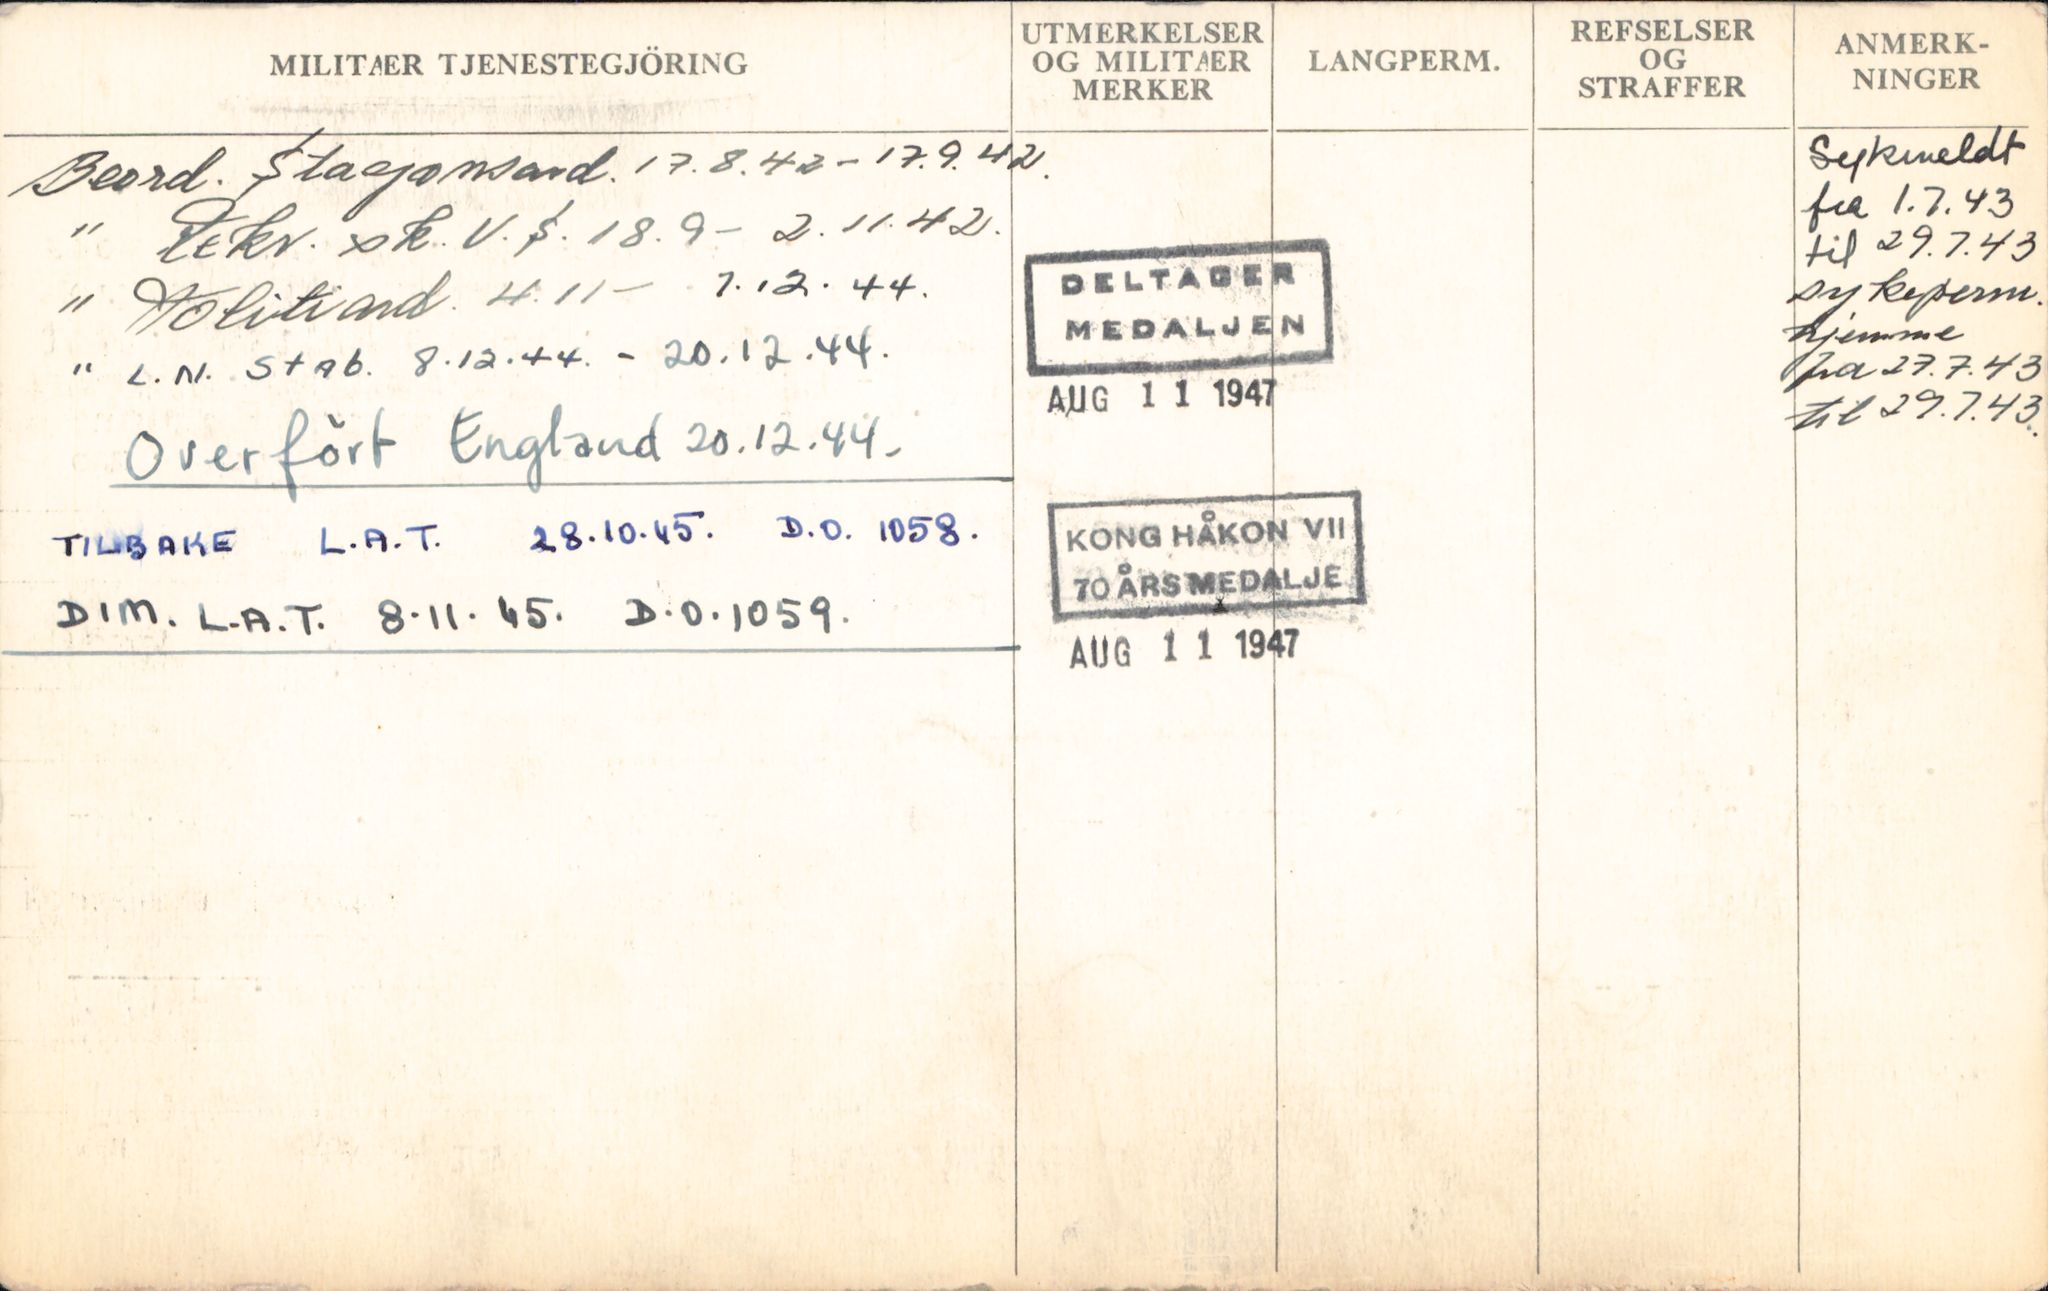 MILITÆR TJENESTEGJÖRING
UTMERKELSER
OG MILITÆR
MERKER
LANGPERM.
REFSELSER
OG
STRAFFER
ANMERK-
NINGER
Beord. Stasjonsavd. 17.8.42 – 17.9.42.
" Rekr. sk. V.S. 18.9 – 2.11.42.
" 4.11 – 7.12.44.
" L.N. Stab. 8.12.44. – 20.12.44.
Overført England 20.12.44.
TILBAKE L.A.T. 28.10.45. D.O. 1058.
DIM. L.A.T. 8.11.45. D.O. 1059.
DELTAGER
MEDALJEN
AUG 11 1947
KONG HÅKON VII
70 ÅRS MEDALJE
AUG 11 1947
Sykmeldt
fra 1.7.43
til 29.7.43
sykeperm.
hjemme
fra 27.7.43
til 29.7.43.